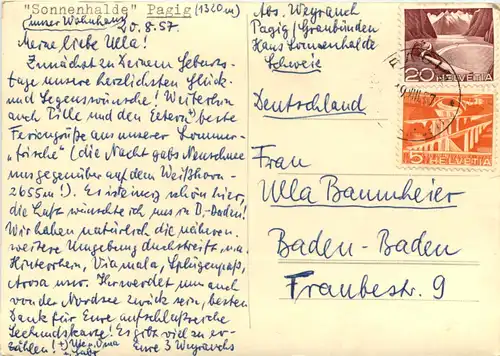 "Sonnenhalde" Pagig (1320 m)
(unser Wohnhaus) 20.8.57
Meine liebe Ulla!
Zunächst zu Deinem Geburts-
tage unsere herzlichsten Glück-
und Segenswünsche! Weiterhin
auch Pille und den Eltern + beste
Feriengrüße aus unserer Sommer-
"frische" (die Nacht gabs Neuschnee
uns gegenüber auf dem Weißhorn -
2655 m!). Es ist einzig schön hier,
die Luft wünschte ich uns in B.-Baden!
Wir haben natürlich die nähere u.
weitere Umgebung durchstreift, u.a.
Hinterrhein, Viamala, Splügenpaß,
Arosa usw. Ihr werdet nun auch
von der Nordsee zurück sein, besten
Dank für Eure aufschlußreiche
Seehundskarte! Es gibt viel zu er-
zählen! Eure 3 Weyrauchs
Abs. Weyrauch
Pagig / Graubünden
Haus Sonnenhalde
Schweiz
Deutschland
Frau
Ulla Baumheier
Baden-Baden
Fraubestr. 9
20 HELVETIA
5 HELVETIA